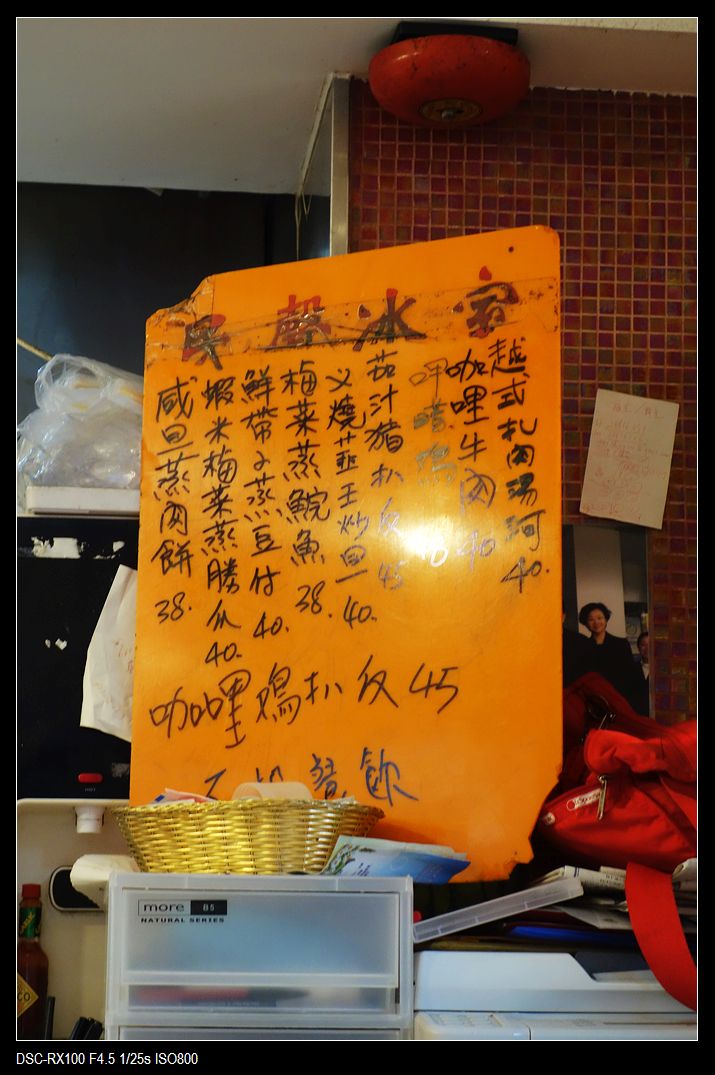 冰室
越式扎肉湯河 40.
咖哩牛肉 40
茄汁豬扒反 45
义燒韮王炒旦 40.
梅菜蒸鯇魚 38.
鮮帶子蒸豆付 40.
蝦米梅菜蒸勝瓜 40.
咸旦蒸肉餅 38.
咖哩鸡扒反 45
餐飲
more B5
NATURAL SERIES
CO
DSC-RX100 F4.5 1/25s ISO800